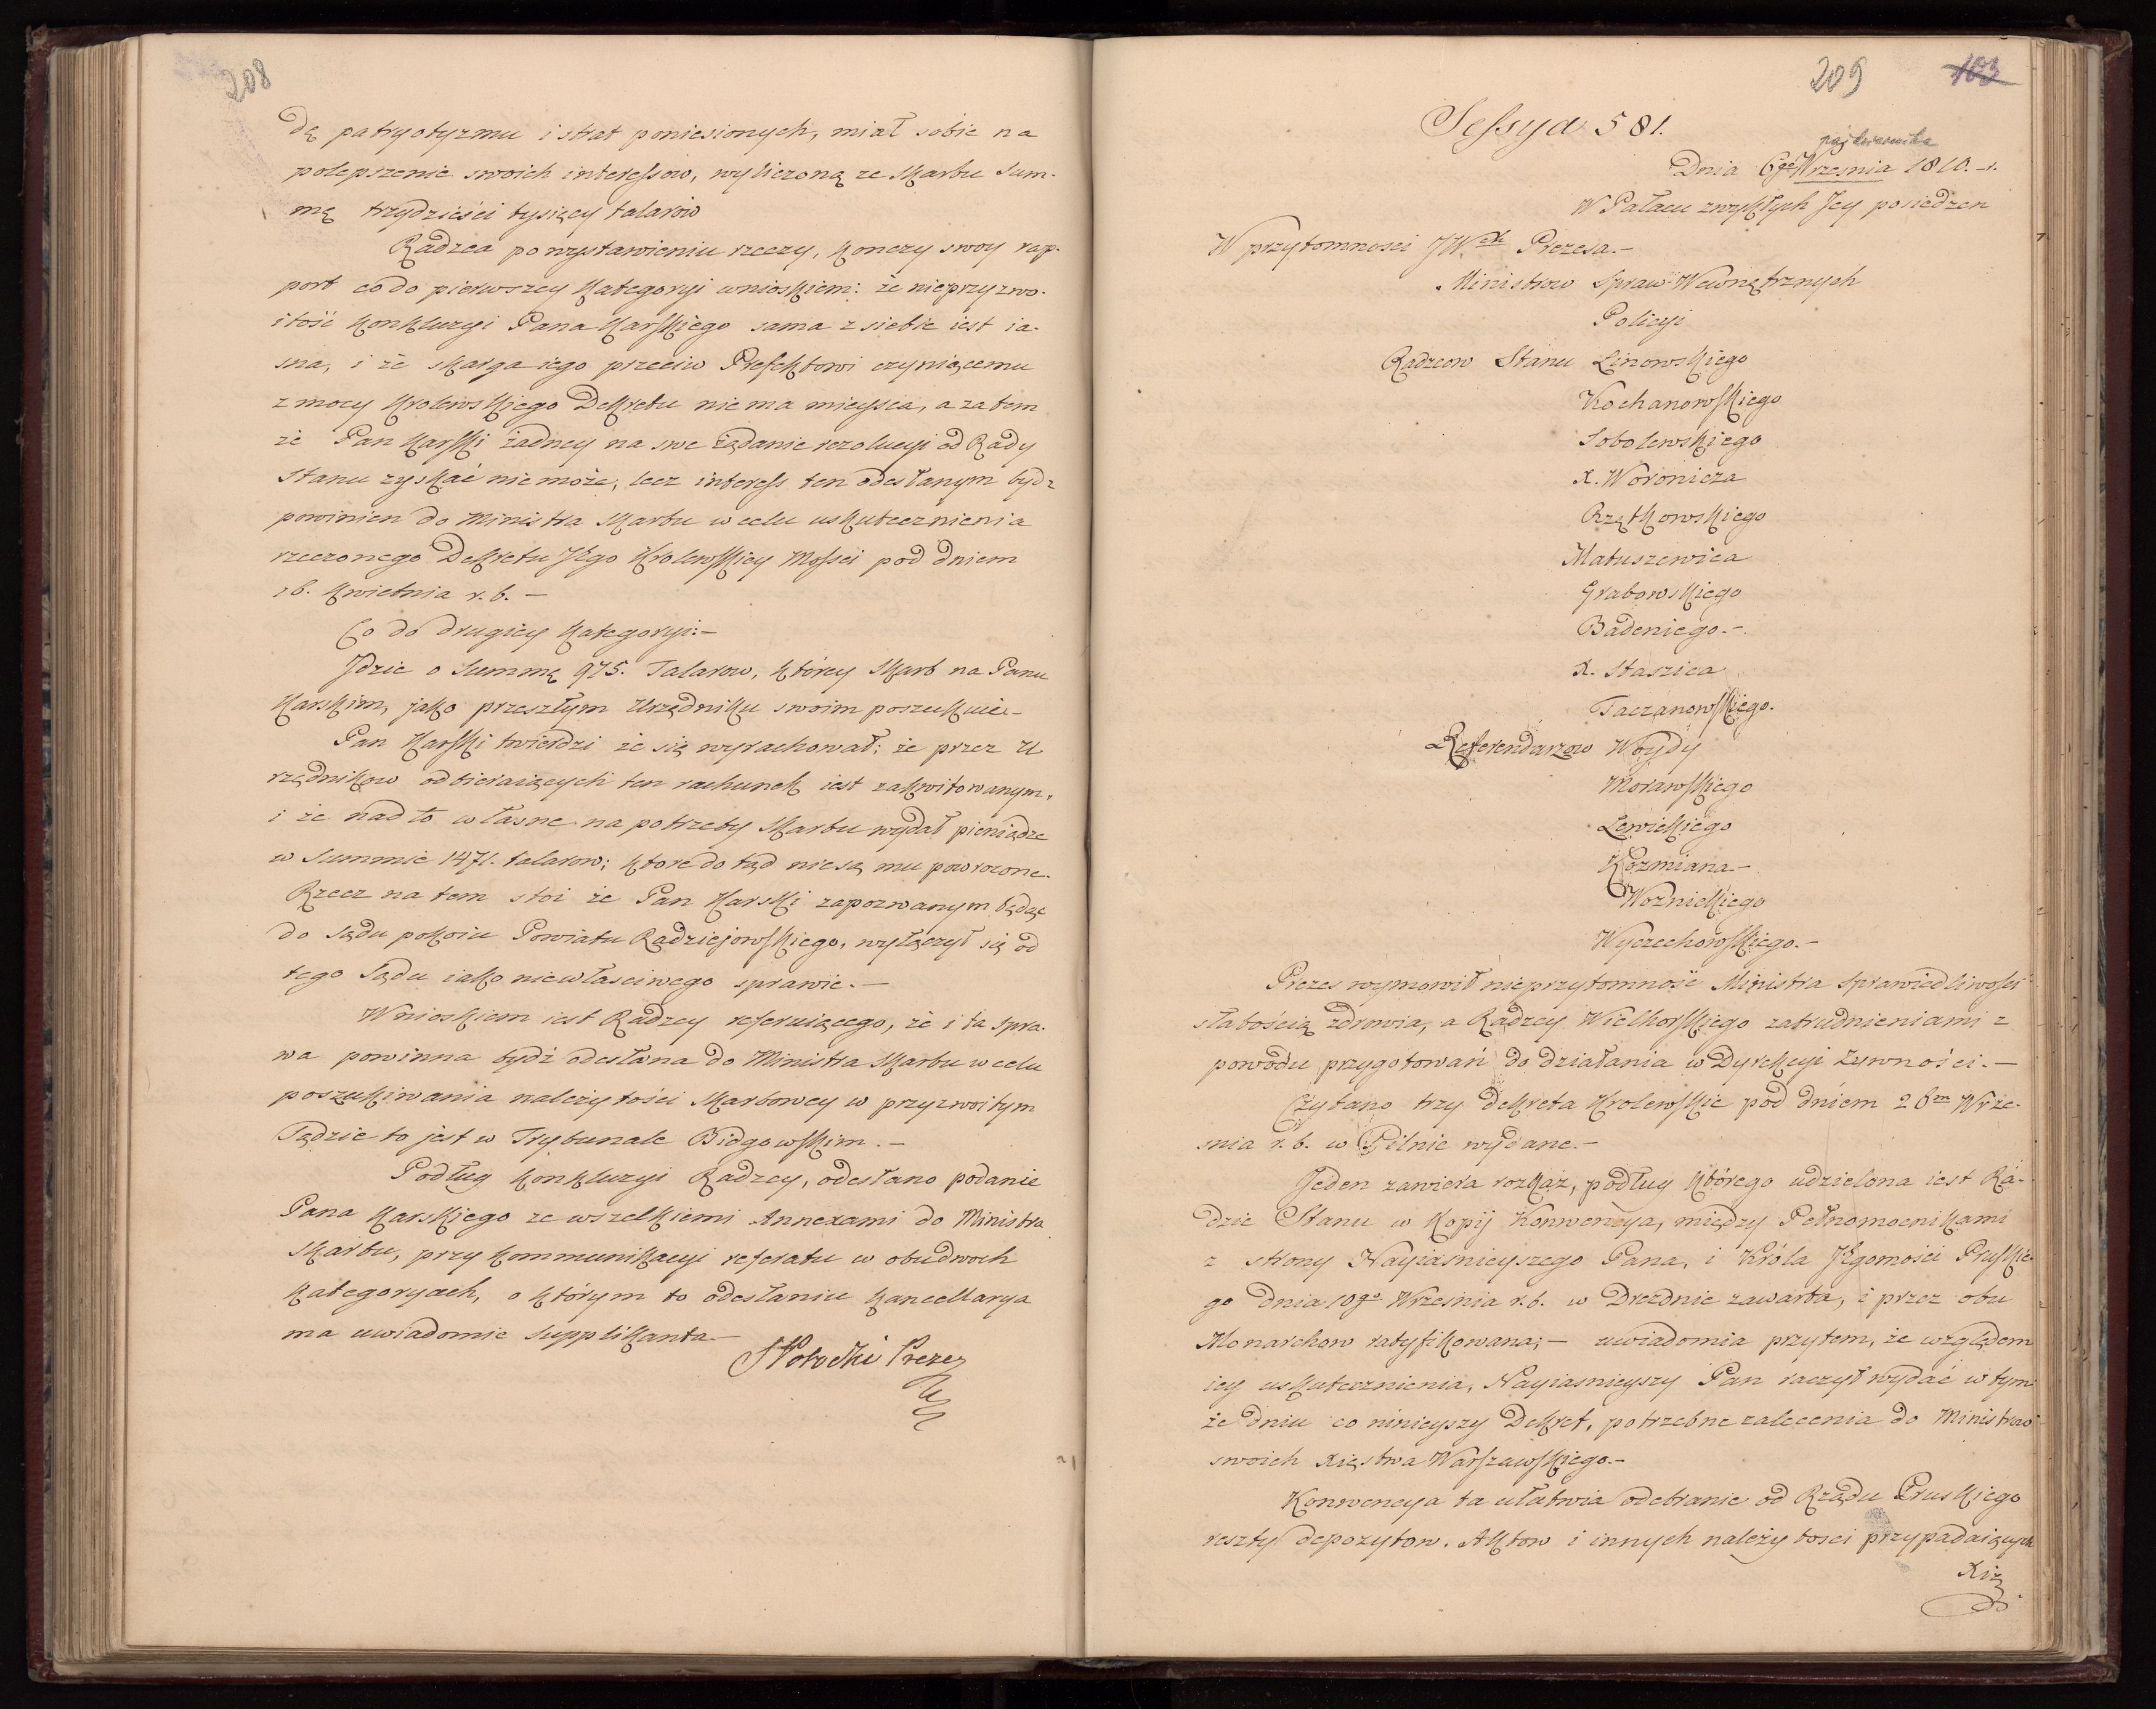 208
dę patryotyzmu i strat poniesionych, miał sobie na
polepszenie swoich interessow, wyliczoną ze Skarbu Sum-
mę trzydzieści tysięcy talarow
Radzca po wystawieniu rzeczy, konczy swoy rap-
port co do pierwszey kategoryi wnioskiem: że nieprzyzwo-
itość konkluzyi Pana Karskiego sama z siebie iest ia-
sna, i że skarga iego przeciw Prefektowi czyniącemu
z mocy Krolewskiego Dekretu nie ma mieysca, a zatem
że Pan Karski żadney na swe żądanie rezolucyi od Rady
Stanu zyskać nie może, lecz interess ten odesłanym bydz
powinien do Ministra Skarbu w celu uskutecznienia
rzeczonego Dekretu JKgo Krolewskiey Mości pod dniem
16. Kwietnia r. b. —
Co do drugiey kategoryi:—
Jdzie o Summę 975. Talarow, którey Skarb na Panu
Karskim, jako przeszłym Urzędniku swoim poszukuie—
Pan Karski twierdzi że się wyrachował; że przez U
rzędnikow odbieraiących ten rachunek iest zakwitowanym,
i że nadto własne na potrzeby Skarbu wydał pieniądze
w Summie 1471. talarow; ktore dotąd nie są mu powrocone.
Rzecz na tem stoi że Pan Karski zapozwanym będąc
do sądu pokoiu Powiatu Radziejowskiego, wyłączył się od
tego Sądu iako niewłasciwego sprawie.—
Wnioskiem iest Radzcy referuiącego, że i ta spra-
wa powinna bydź odesłana do Ministra Skarbu w celu
poszukiwania należytości Skarbowey w przyzwoitym
Sądzie to jest w Trybunale Bidgowskim.—
Podług konkluzyi Radzcy, odesłano podanie
Pana Karskiego ze wszelkiemi Annexami do Ministra
Skarbu, przy kommunikacyi referatu w obudwoch
kategoryach, o którym to odesłaniu kancellarya
ma uwiadomic supplikanta—
S Potocki Prezes
209 103
Sessya 581.
października
Dnia 6go Wrzesnia 1810.—r.
W Pałacu zwykłych Jey posiedzen
W przytomnosci JW.ch Prezesa.—
Ministrow Spraw Wewnętrznych
Policyi
Radzcow Stanu Linowskiego
Kochanowskiego
Sobolewskiego
X. Woronicza
Rzątkowskiego
Matuszewica
Grabowskiego
Badeniego.—
X. Staszica
Taczanowskiego.
Referendarzow Woydy
Morawskiego
Lewickiego
Kozmiana—
Woznickiego
Wyczechowskiego.—
Prezes wymowił nieprzytomnośc Ministra Sprawiedliwości
słabością zdrowia, a Radzcy Wielhorskiego zatrudnieniami z
powodu przygotowań do działania w Dyrekcyi Zywności.—
Czytano trzy dekreta Krolewskie pod dniem 26m Wrze-
snia r. b. w Pilnie wydane.—
Jeden zawiera rozkaz, podług którego udzielona iest Ra-
dzie Stanu w kopij Konwencya, między Pełnomocnikami
z strony Nayiasnieyszego Pana, i Króla JKgomości Pruskie-
go dnia 10go Wrzesnia r. b. w Dreznie zawarta, i przez obu
Monarchow ratyfikowana;— uwiadomia przytem, że względem
iey uskutecznienia, Nayiasnieyszy Pan raczył wydać w tym
że dniu co ninieyszy Dekret, potrzebne zalecenia do Ministrow
swoich Xięstwa Warszawskiego.—
Konwencya ta ułatwia odebranie od Rządu Pruskiego
reszty depozytow, Aktow i innych należytosci przypadaiących
Xię